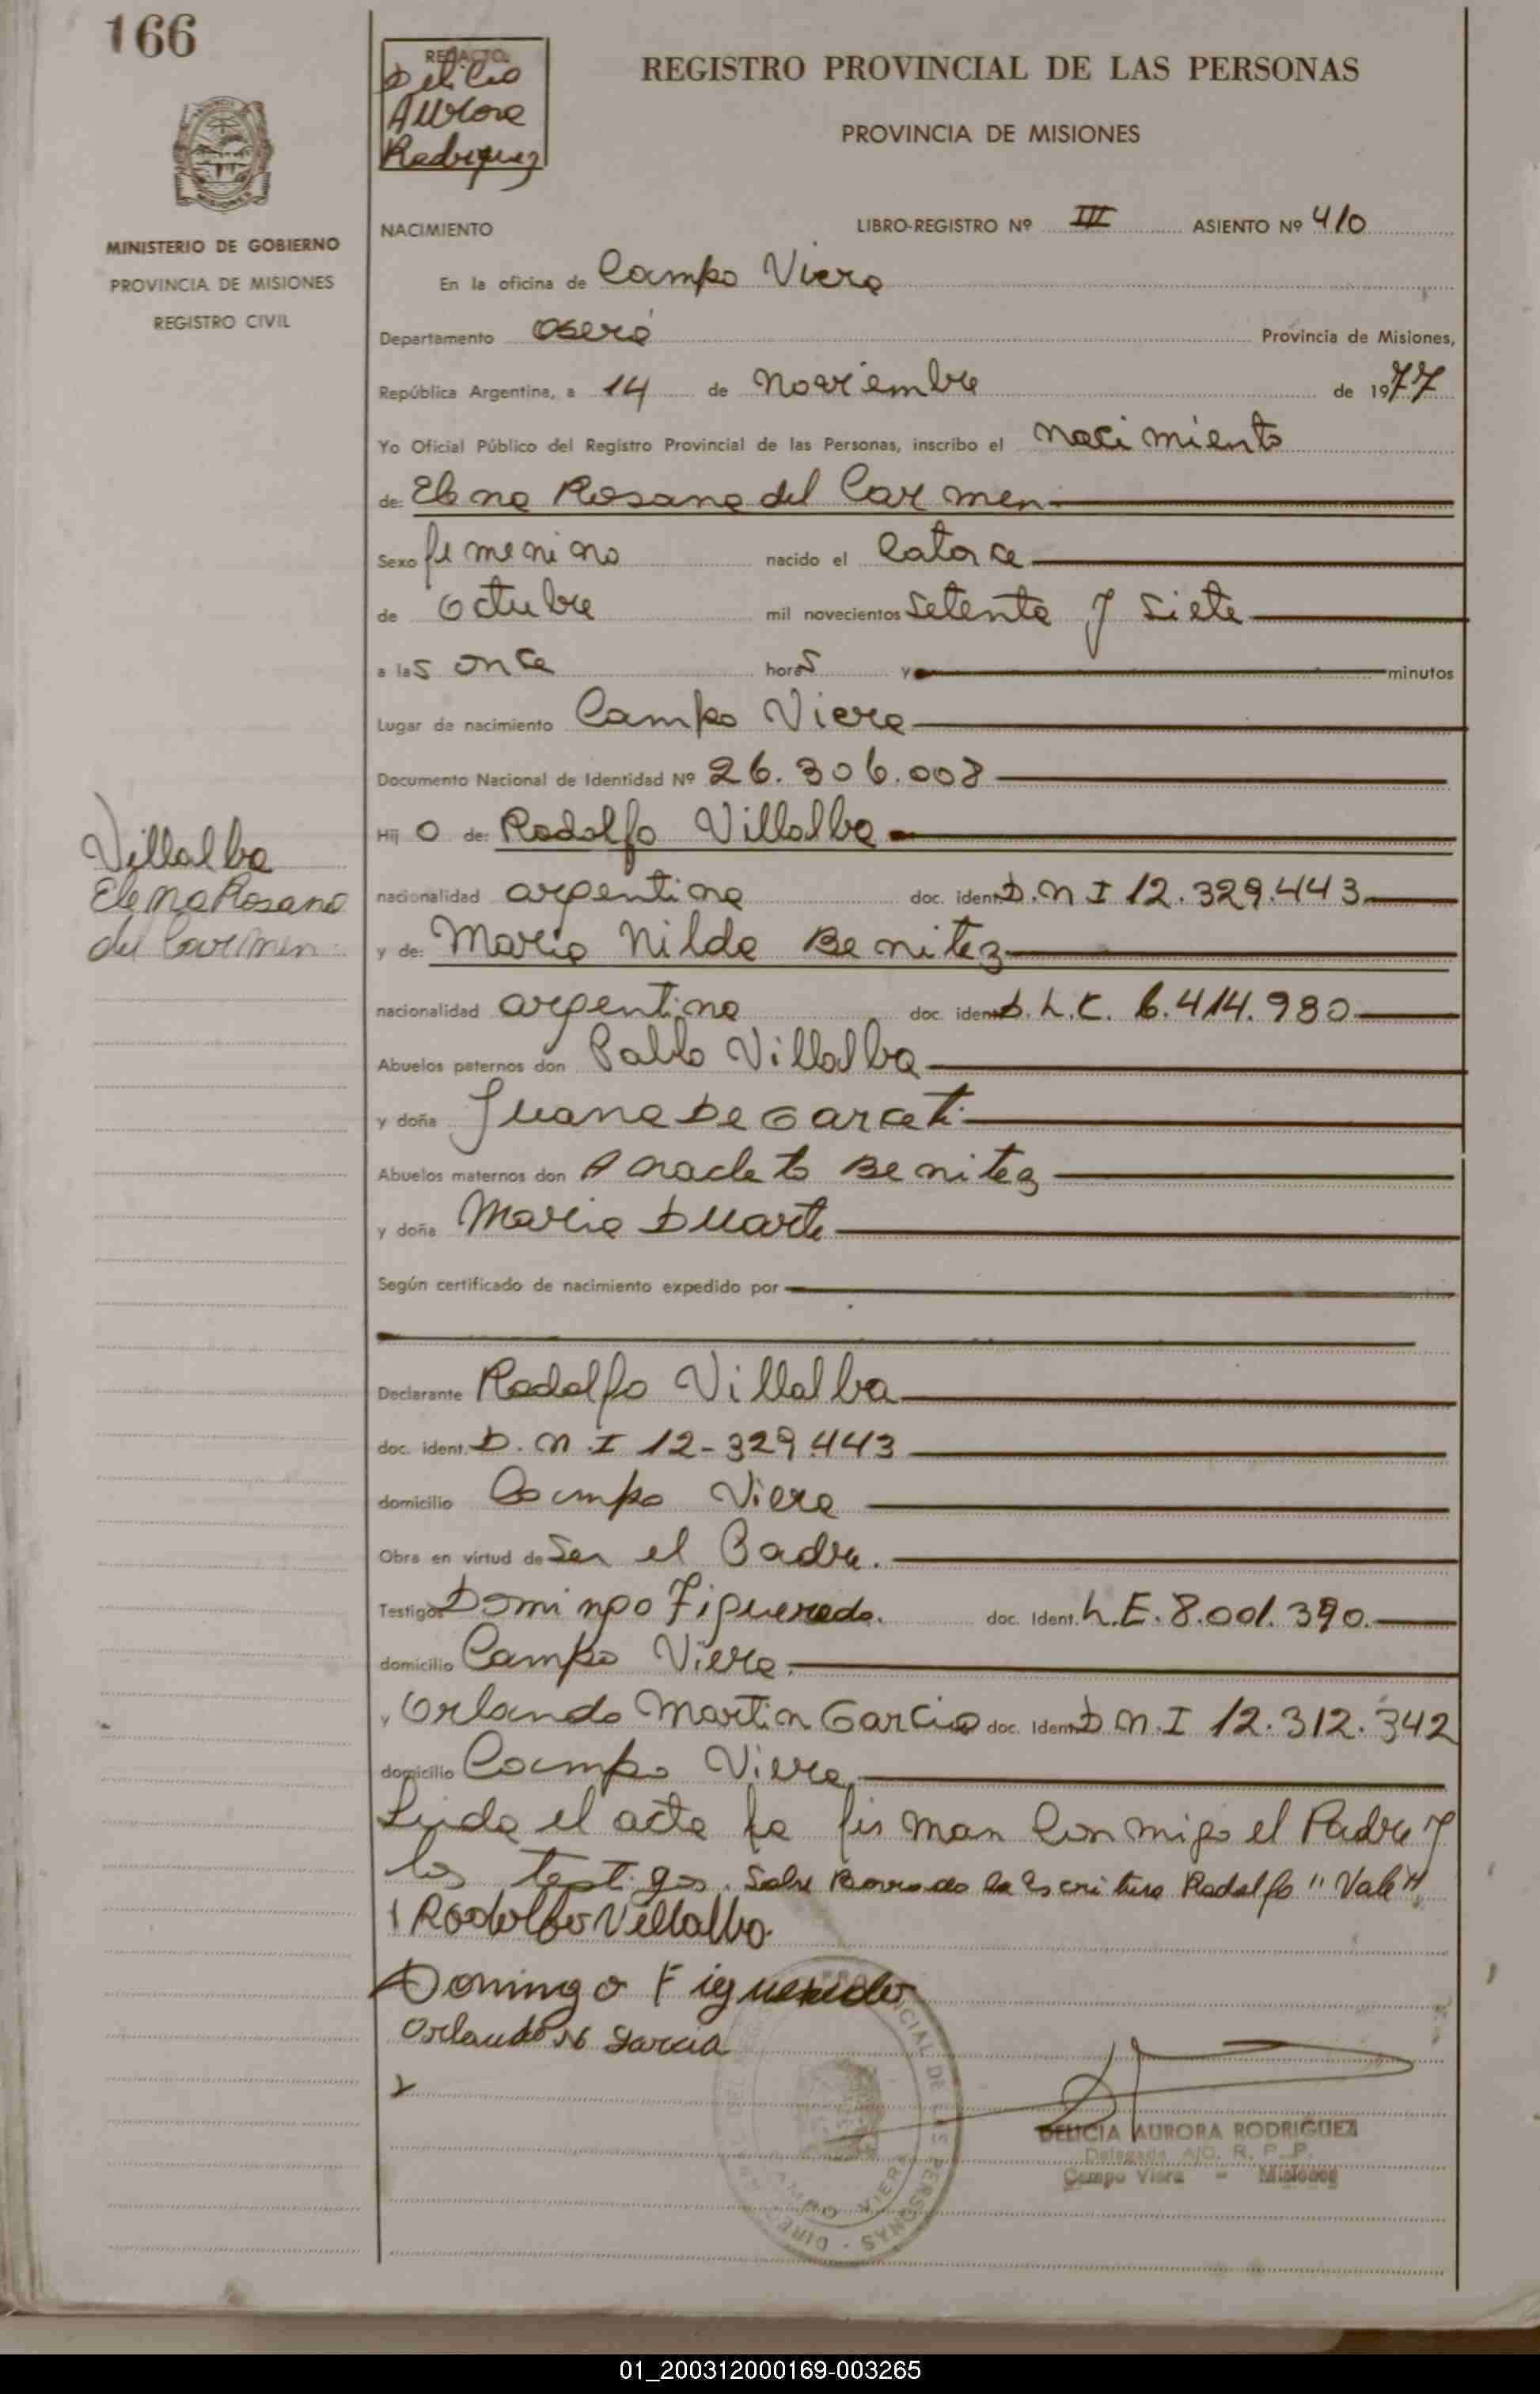 166
REDACTO
Delicia
Aurora
Rodriguez
REGISTRO PROVINCIAL DE LAS PERSONAS
PROVINCIA DE MISIONES
MISIONES
MINISTERIO DE GOBIERNO
PROVINCIA DE MISIONES
REGISTRO CIVIL
NACIMIENTO LIBRO-REGISTRO Nº III ASIENTO Nº 410
En la oficina de Campo Viera
Departamento Oberá Provincia de Misiones,
República Argentina, a 14 de Noviembre de 1977
Yo Oficial Público del Registro Provincial de las Personas, inscribo el nacimiento
de: Elena Rosana del Carmen
Sexo femenino nacido el Catorce
de Octubre mil novecientos Setenta y Siete
a las once horas y minutos
Lugar de nacimiento Campo Viera
Documento Nacional de Identidad Nº 26.306.008
Hijo de: Rodolfo Villalba
Villalba
Elena Rosana
del Carmen
nacionalidad argentina doc. ident. D.N.I 12.329.443
y de: Maria Nilda Benitez
nacionalidad argentina doc. ident. D.L.C. 6.414.980
Abuelos paternos don Pablo Villalba
y doña Juana De Garceti
Abuelos maternos don Anacleto Benitez
y doña Maria Duarte
Según certificado de nacimiento expedido por
Declarante Rodolfo Villalba
doc. ident. D.N.I 12-329.443
domicilio Campo Viera
Obra en virtud de Ser el Padre.
Testigos Domingo Figueredo. doc. Ident. L.E. 8.001.390.
domicilio Campo Viera.
y Orlando Martin Garcia doc. Ident. D.N.I 12.312.342
domicilio Campo Viera,
Leida el acta la firman Conmigo el Padre y
los testigos. Sobre Borrado la escritura Rodolfo "Vale"
Rodolfo Villalba
Domingo Figueredo
Orlando M Garcia
DELICIA AURORA RODRIGUEZ
Delegada A/C. R. P. P.
Campo Viera - Misiones
DIRECCION PROVINCIAL DE LAS PERSONAS
CAMPO VIERA
01_200312000169-003265